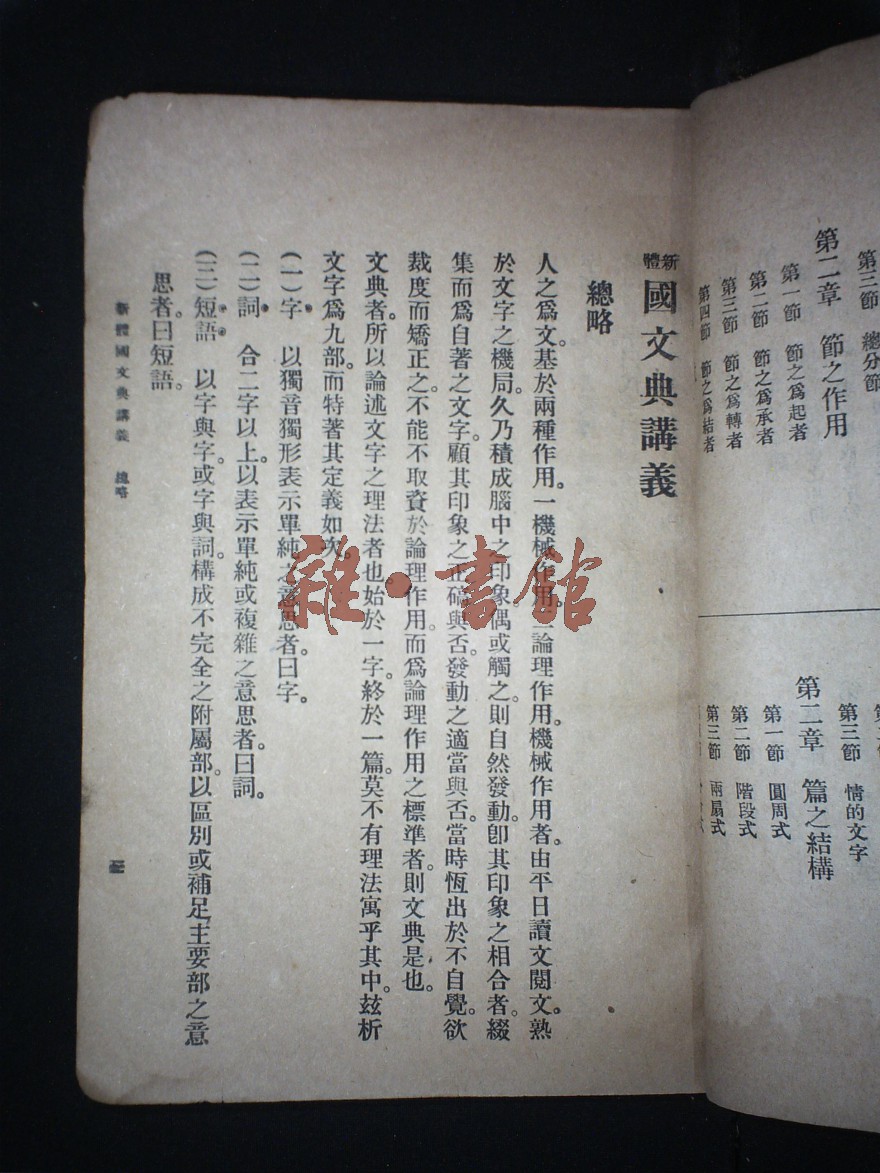 第三節　總分節
第二章　節之作用
第一節　節之爲起者
第二節　節之爲承者
第三節　節之爲轉者
第四節　節之爲結者
第三節　情的文字
第二章　篇之結構
第一節　圓周式
第二節　階段式
第三節　兩扇式
新體國文典講義
總略
人之爲文。基於兩種作用。一機械作用。二論理作用。機械作用者。由平日讀文閱文。熟
於文字之機局。久乃積成腦中之印象。偶或觸之。則自然發動。卽其印象之相合者。綴
集而爲自著之文字。顧其印象之正確與否。發動之適當與否。當時恆出於不自覺。欲
裁度而矯正之。不能不取資於論理作用。而爲論理作用之標準者。則文典是也。
文典者。所以論述文字之理法者也。始於一字。終於一篇。莫不有理法寓乎其中。玆析
文字爲九部。而特著其定義如次。
(一)字　以獨音獨形表示單純之意思者。曰字。
(二)詞　合二字以上。以表示單純或複雜之意思者。曰詞。
(三)短語　以字與字。或字與詞。構成不完全之附屬部。以區別或補足主要部之意
思者。曰短語。
新體國文典講義　總略
雜·書館